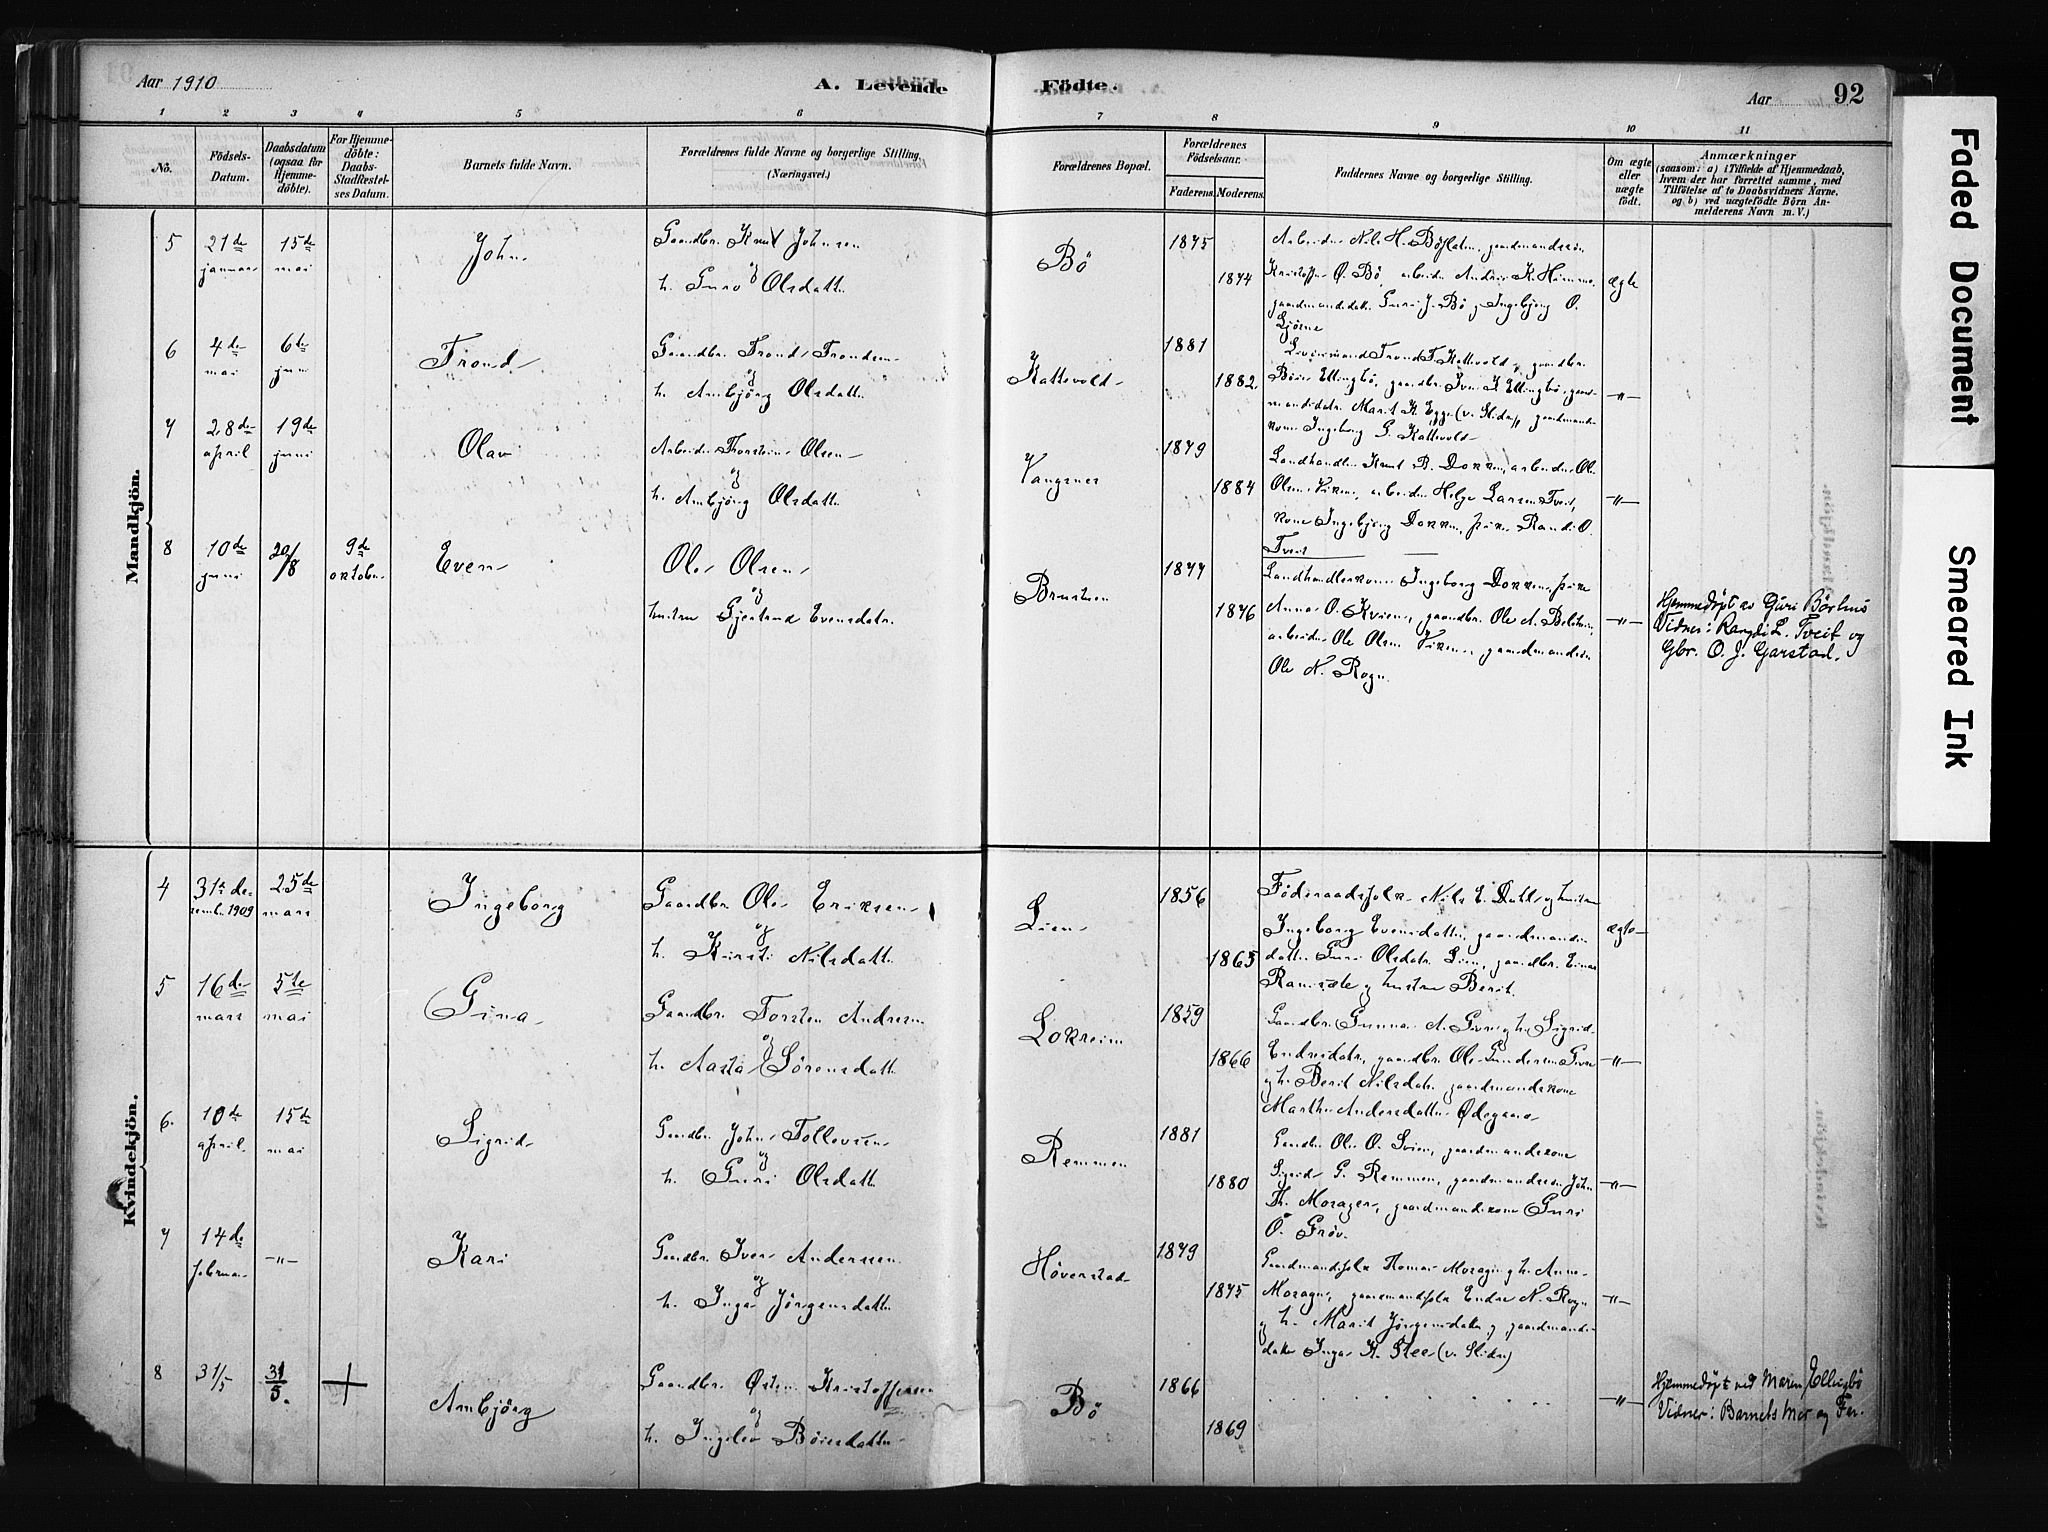 Aar 1910
A. Levende
Födte.
Aar
92
1 2 3 4 5 6 7 8 9 10 11
No.
Födsels-
Datum.
Daabsdatum
(ogsaa for
Hjemme-
döbte).
For Hjemme-
döbte:
Daabs-
Stadfestel-
ses Datum.
Barnets fulde Navn.
Forældrenes fulde Navne og borgerlige Stilling.
(Næringsvei.)
Forældrenes Bopæl.
Forældrenes
Födselsaar.
Faderens.
Moderens.
Faddernes Navne og borgerlige Stilling.
Om ægte
eller
uægte
født.
Anmærkninger
(saasom: a) i Tilfælde af Hjemmedaab,
hvem der har forrettet samme, med
Tilföielse af to Daabsvidners Navne,
og b) ved uægtefödte Börn An-
melderens Navn m.V.)
Mandkjön.
5
21de
januar
15de
mai
John
Gaardbr. Knut Johnsen
og
h. Guro Olsdatter
Bö
1875
1874
Arbeider Nils H. Böflaten, gaardmandssøn
Kristoffer O. Bö, arbeider Andris K. Hemme,
gaardmandsdatter Guri J. Bö, Ingebjørg O.
ægte
6
4de
mai
6te
juni
Trond
Gaardbr. Trond Trondsen
og
h. Ambjörg Olsdatter
Kattevold
1881
1882
Trond T. Kattevold, gaardbr.
Börre Ellingbö, gaardbr. Iver K. Ellingbö, gaard-
mandsdatr. Marit K. Egge (v. Slidre), gaardmands-
kone Ingeborg G. Kattevold
-"-
7
28de
april
19de
juni
Olav
Arbeider Thorstein Olsen
og
h. Ambjörg Olsdatter
Vangsnes
1879
1884
Landhandler Knut B. Dokken, arbeider Ole
Olsen Viken, arbeider Helge Larsen Tveit,
kone Ingebjørg Dokken, pike Randi O.
Tveit
-"-
8
10de
juni
20/8
9de
oktober
Even
Ole Olsen
og
hustru Gjertrud Evensdatr.
Brusteen
1877
1876
Landhandlerkone Ingeborg Dokken, pike
Anna O. Kvien, gaardbr. Ole A. Belsheim,
arbeider Ole Olsen Viken, gaardmandssøn
Ole N. Rogn.
-"-
Hjemmedøpt av Guri Börhus
Vidner: Rangdi L. Tveit og
Gbr. O. J. Garstad.
Kvindekjön.
4
31te de-
cember 1909
25de
mars
Ingeborg
Gaardbr. Ole Eriksen
og
h. Kirsti Nilsdatter
Lien
1856
1865
Föderaadsfolk Nils E. Dahl og hustru
Ingeborg Evensdatter, gaardmands-
datter Guri Olsdatr. Lien, gaardbr. Einar
Ranisæte og hustru Berit.
ægte
5
16de
mars
5te
mai
Gina
Gaardbr. Torsten Andresen
og
h. Aasta Sörensdatter
Lokreim
1859
1866
Gaardbr. Gunnar A. og h. Sigrid
Endresdatr., gaardbr. Ole Gundersen
og h. Berit Nilsdatr. gaardmandskone
Marthe Andersdatter Ødegaard
-"-
6.
10de
april
15de
mai
Sigrid
Gaardbr. John Tollevsen
og
h. Guri Olsdatter
Remmen
1881
1880
Gaardbr. Ole O. Svien, gaardmandskone
Sigrid G. Remmen, gaardmandssøn John
Th. Moragen, gaardmandskone Guri
O. Gröv.
-"-
7
14de
februar
-"-
Kari
Gaardbr. Iver Anderssen
og
h. Inga Jörgensdatter
Höverstad
1879
1875
Gaardmandsfolk Tomas Moragen og h. Anne
Moragen, gaardmandsfolk Endre N. Rogn
og h. Marit Jörgensdatr. og gaardmands-
datter Inga K. Stee (v. Slidre)
-"-
8
31/5
31/5.
+
Ambjörg
Gaardbr. Østen Kristoffersen
og
h. Ingelev Börresdatter
Bö
1866
1869
-"-
Hjemmedøpt ved Maren Ellingbö
Vidner: Barnets Mor og Far.
Faded Document
Smeared Ink